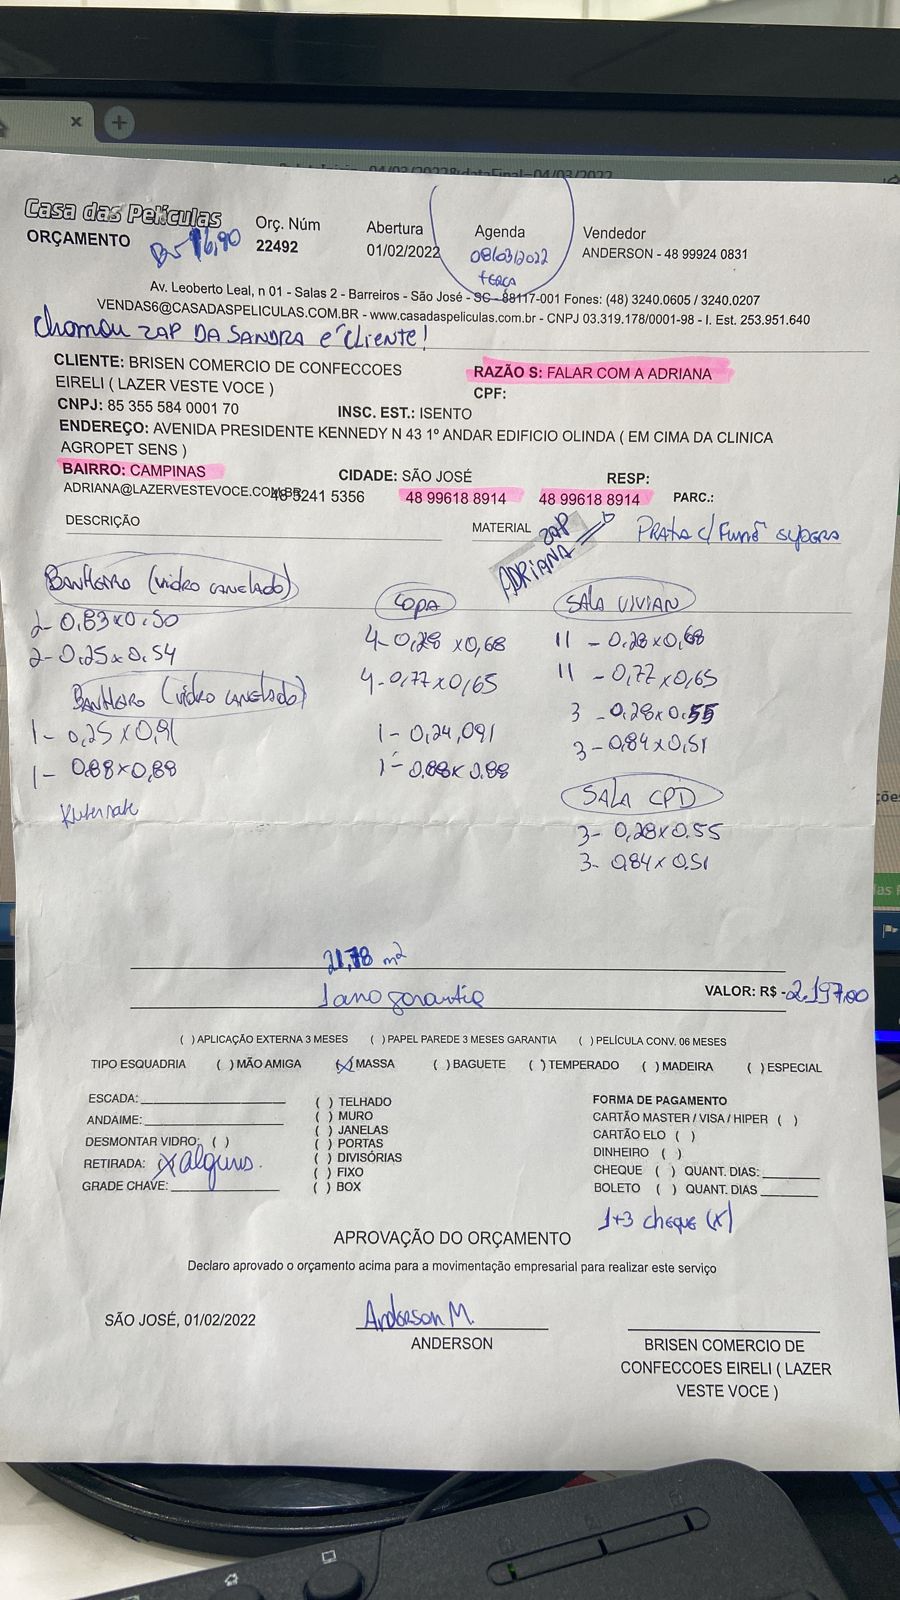 04/03/2022&dataFinal=04/03/2022
Casa das Películas
ORÇAMENTO
16,90
Orç. Núm
22492
Abertura
01/02/2022
Agenda
08/03/2022
terça
Vendedor
ANDERSON - 48 99924 0831
Av. Leoberto Leal, n 01 - Salas 2 - Barreiros - São José - SC - 88117-001 Fones: (48) 3240.0605 / 3240.0207
VENDAS6@CASADASPELICULAS.COM.BR - www.casadaspeliculas.com.br - CNPJ 03.319.178/0001-98 - I. Est. 253.951.640
chamou ZAP DA SANDRA é cliente!
CLIENTE: BRISEN COMERCIO DE CONFECCOES
EIRELI ( LAZER VESTE VOCE )
RAZÃO S: FALAR COM A ADRIANA
CPF:
CNPJ: 85 355 584 0001 70
INSC. EST.: ISENTO
ENDEREÇO: AVENIDA PRESIDENTE KENNEDY N 43 1º ANDAR EDIFICIO OLINDA ( EM CIMA DA CLINICA
AGROPET SENS )
BAIRRO: CAMPINAS
CIDADE: SÃO JOSÉ
RESP:
ADRIANA@LAZERVESTEVOCE.COM.BR
48 3241 5356
48 99618 8914
48 99618 8914
PARC.:
DESCRIÇÃO
MATERIAL
ZAP
ADRIANA
Prata c/ Fumê
Banheiro (vidro canelado)
2- 0,83x0,50
2- 0,25x0,54
Banheiro (vidro canelado)
1- 0,25x0,91
1- 0,88x0,88
Copa
4- 0,28x0,68
4- 0,77x0,65
1- 0,24,091
1- 0.88x0.88
SALA VIVIAN
11 - 0,28x0,68
11 - 0,77x0,65
3 - 0,28x0,55
3- 0,84x0,51
SALA CPD
3- 0,28x0,55
3- 0,84x0,51
21,78 m²
1 ano garantia
VALOR: R$ -2.197,00
( ) APLICAÇÃO EXTERNA 3 MESES ( ) PAPEL PAREDE 3 MESES GARANTIA ( ) PELÍCULA CONV. 06 MESES
TIPO ESQUADRIA ( ) MÃO AMIGA (x) MASSA ( ) BAGUETE ( ) TEMPERADO ( ) MADEIRA ( ) ESPECIAL
ESCADA:
ANDAIME:
DESMONTAR VIDRO: ( )
RETIRADA: x alguns.
GRADE CHAVE:
( ) TELHADO
( ) MURO
( ) JANELAS
( ) PORTAS
( ) DIVISÓRIAS
( ) FIXO
( ) BOX
FORMA DE PAGAMENTO
CARTÃO MASTER / VISA / HIPER ( )
CARTÃO ELO ( )
DINHEIRO ( )
CHEQUE ( ) QUANT. DIAS:
BOLETO ( ) QUANT. DIAS
1+3 cheque (x)
APROVAÇÃO DO ORÇAMENTO
Declaro aprovado o orçamento acima para a movimentação empresarial para realizar este serviço
SÃO JOSÉ, 01/02/2022
Anderson M.
ANDERSON
BRISEN COMERCIO DE
CONFECCOES EIRELI ( LAZER
VESTE VOCE )